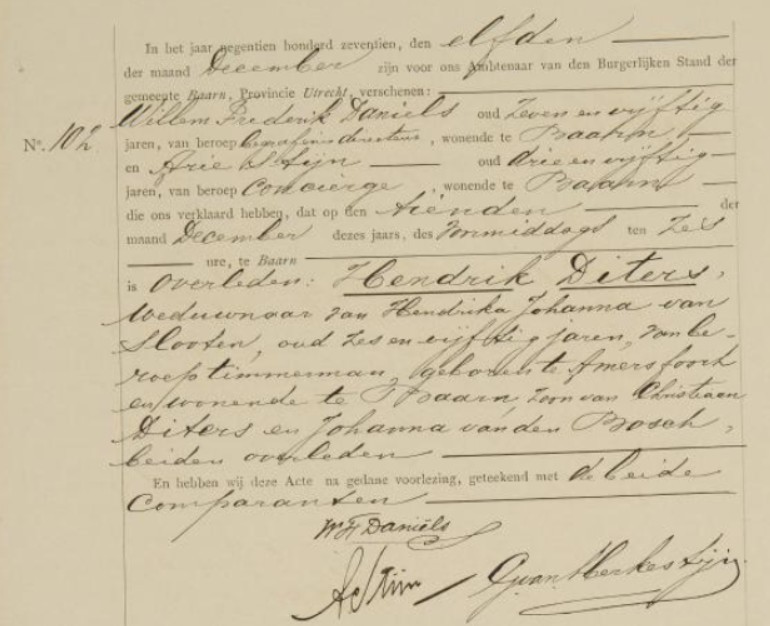 In het jaar negentien honderd zeventien, den elfden
der maand December zijn voor ons Ambtenaar van den Burgerlijken Stand der
gemeente Baarn, Provincie Utrecht, verschenen:
Willem Frederik Daniels oud zeven en vijftig
No. 102 jaren, van beroep begrafenisdirecteur, wonende te Baarn
en Arie Stijn oud drie en vijftig
jaren, van beroep Concierge, wonende te Baarn
die ons verklaard hebben, dat op den tienden der
maand December dezes jaars, des voormiddags ten zes
ure, te Baarn
is overleden: Hendrik Diters,
weduwnaar van Hendrika Johanna van
Slooten, oud zes en vijftig jaren, van be-
roep timmerman, geboren te Amersfoort
en wonende te Baarn, zoon van Christiaan
Diters en Johanna van den Bosch,
beiden overleden
En hebben wij deze Acte na gedane voorlezing, geteekend met de beide
Comparanten
W F Daniëls
A Stijn
G van Merkesteijn